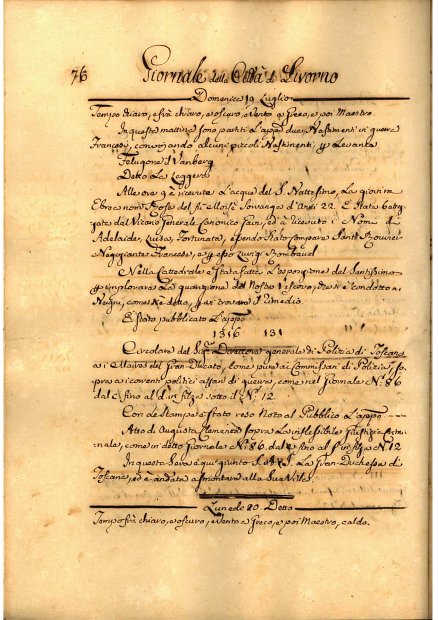 76 Giornale della Città di Livorno
Domenica 19 Luglio
Tempo chiaro, e frà chiaro, e oscuro, vento a Greco, e poi Maestro.
In questa mattina sono partiti L'app.o due Bastimenti in guerra
Francesi, convojando alcuni piccoli Bastimenti p Levante
Felugone il Vanberg
Detto La Leggera
Alle ore 9 à ricevuta L'acqua del S. Battesimo, La giovine
Ebrea nom. Rosa del fù Moisè Sonsanga d'anni 22. È Stata battez=
zata dal Vicario Generale Canonico ed à ricevuto i Nomi di
Adelaide, Luisa, Fortunata, essendo stato Compare
Negoziante Francese, e p esso Luigi Bombaud
Nella Cattedrale è stata fatta L'esposizione del Santissimo
p implorare La guarigione del Nostro Vescovo, che si è condotto ai
Bagni, come si è detto, p ivi trovar il rimedio.
È Stato pubblicato L'app.o
1316 131
Circolare del Sig.e Direttore generale di Polizia di Toscana
ai Maires del Gran Ducato, come pure ai Commissari di Polizia
ai correnti politici affari di guerra, come nel giornale N.o 86
dal C.e fino al d in filza sotto d. N.o 12
Con de Stampe è stato reso Noto al Pubblico L'app.o
Atto di Augusta Clemenza sopra la inflessibile giustizia
come in detto giornale N.o 86. dal e fino al f in filza N.o 12
In questa Sera è qui giunta S. A. I. La Gran-Duchessa di
Toscana, ed è andata a smontare alla Sua Villa
Lunedi 20 Detto
Tempo frà chiaro, e oscuro, e vento a Greco, e poi Maestro, caldo.